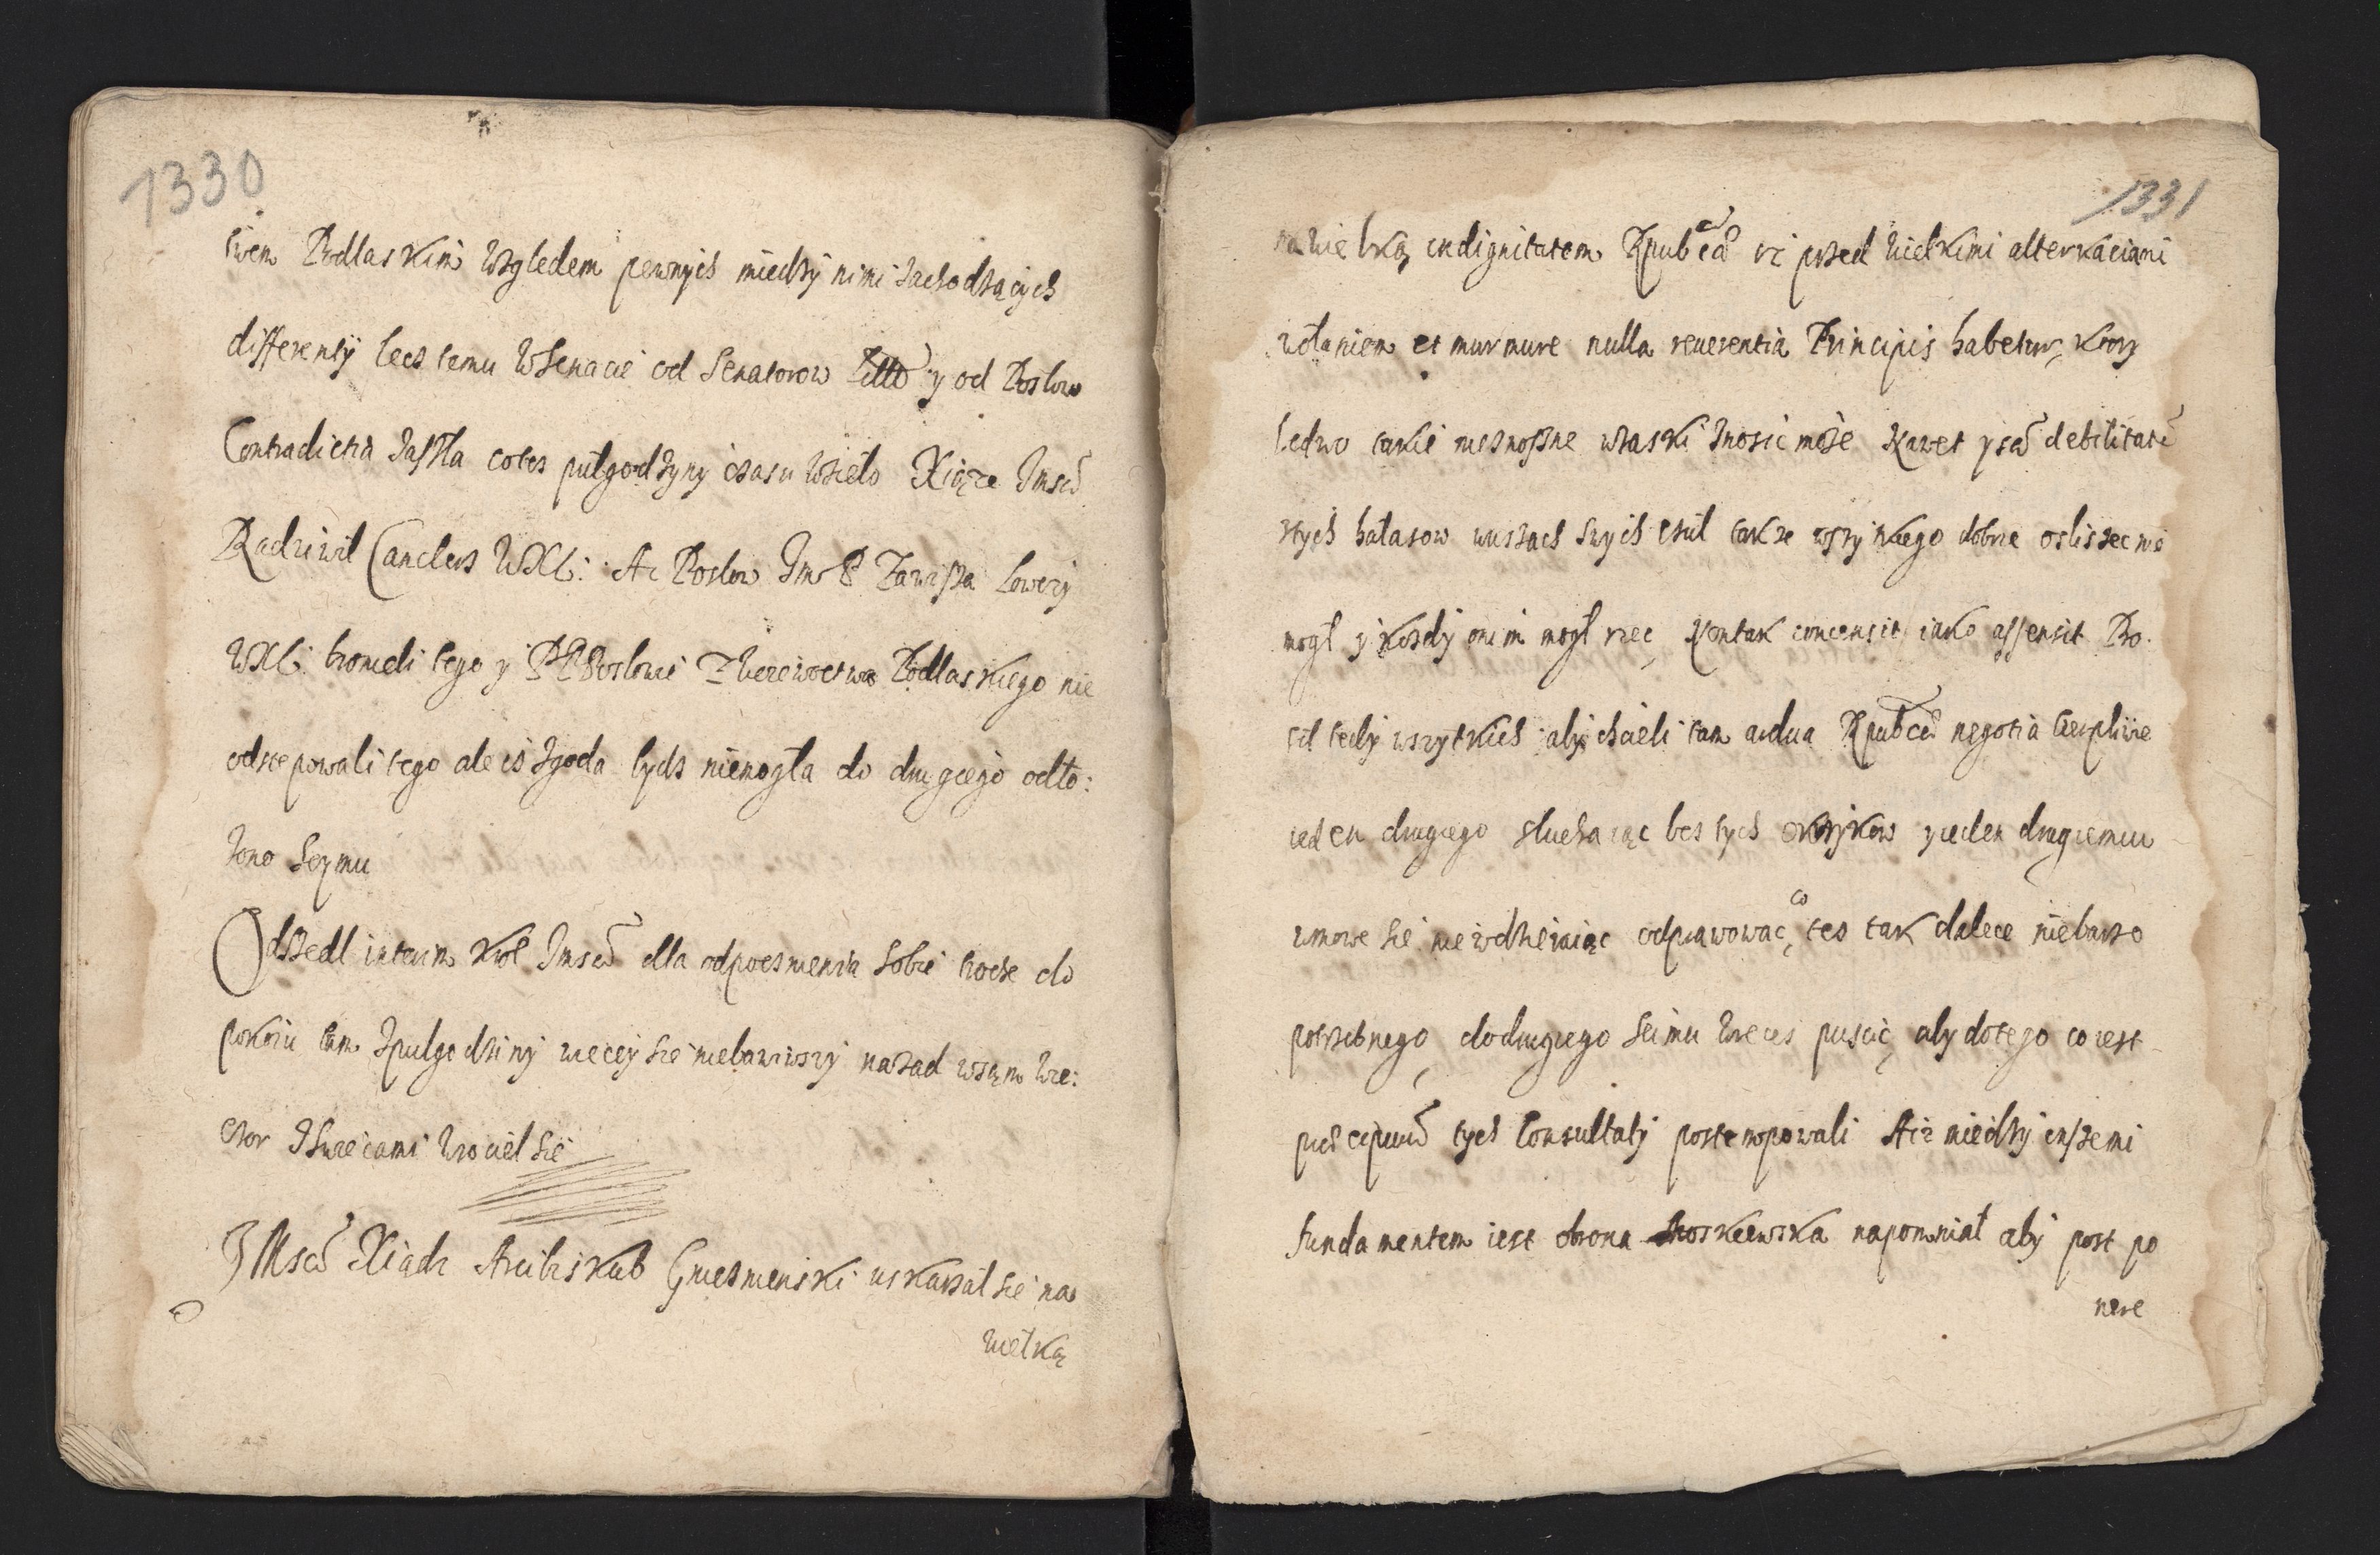 1330
twem Podlaskim względem pewnych miedzy nimi zachodzących
differenty lecz temu w Senacie od Senatorow y od Posłow
Contradictia zaszła cotes pułgodzyny czasu wzieło Xiąże Jmsć
Radziwił Canclers WXL: A z Posłow Jm P Zawisza Łowczy
WXL: bronieli tego y PP Posłowie Podlaskiego nie
odstepowali tego ale is zgoda bydz niemogła do drugiego odło:
żono Seymu
Odszedl interim Krol Jmsć dla odpocznienia sobie troche do
pokoiu tam zpułgodziny wiecey sie niebawiwszy nazad w sam wie:
czor z swiecami wrociel sie
J Msć Xiądz Arcibiskub Gnieznienski uskarzał sie na
wielką
1331
na wielką indignitatem Rpubcae iż przed wielkimi altercaciami
wołaniem et murmure nulla reuerentia Principis habetur, ktory
ledwo takie nieznoszne wrzaski znosic może Nawet y sam debilitatē
s tych hałasow w uszach swych czuł tak ze wszytkiego dobrze osliszec nie
mogł y kozdy onim mogł rzec, Non tak concensit iako assensit Pro.
sił tedy wszytkich aby chcieli tam ardua Rpubcae negotia cierpliwie
ieden drugiego słuchaiąc bes tych okrzykow y ieden drugiemu
w mowe sie nie wdzieraiąc odprawowac, co tes tak dalece niebarzo
potrzebnego, do drugiego Seimu wreces puscic, aby do tego co iest
tych Consultaty postempowali A iż miedzy inszemi
fundamentem iest obrona Moskiewska napomniał aby post po
nere